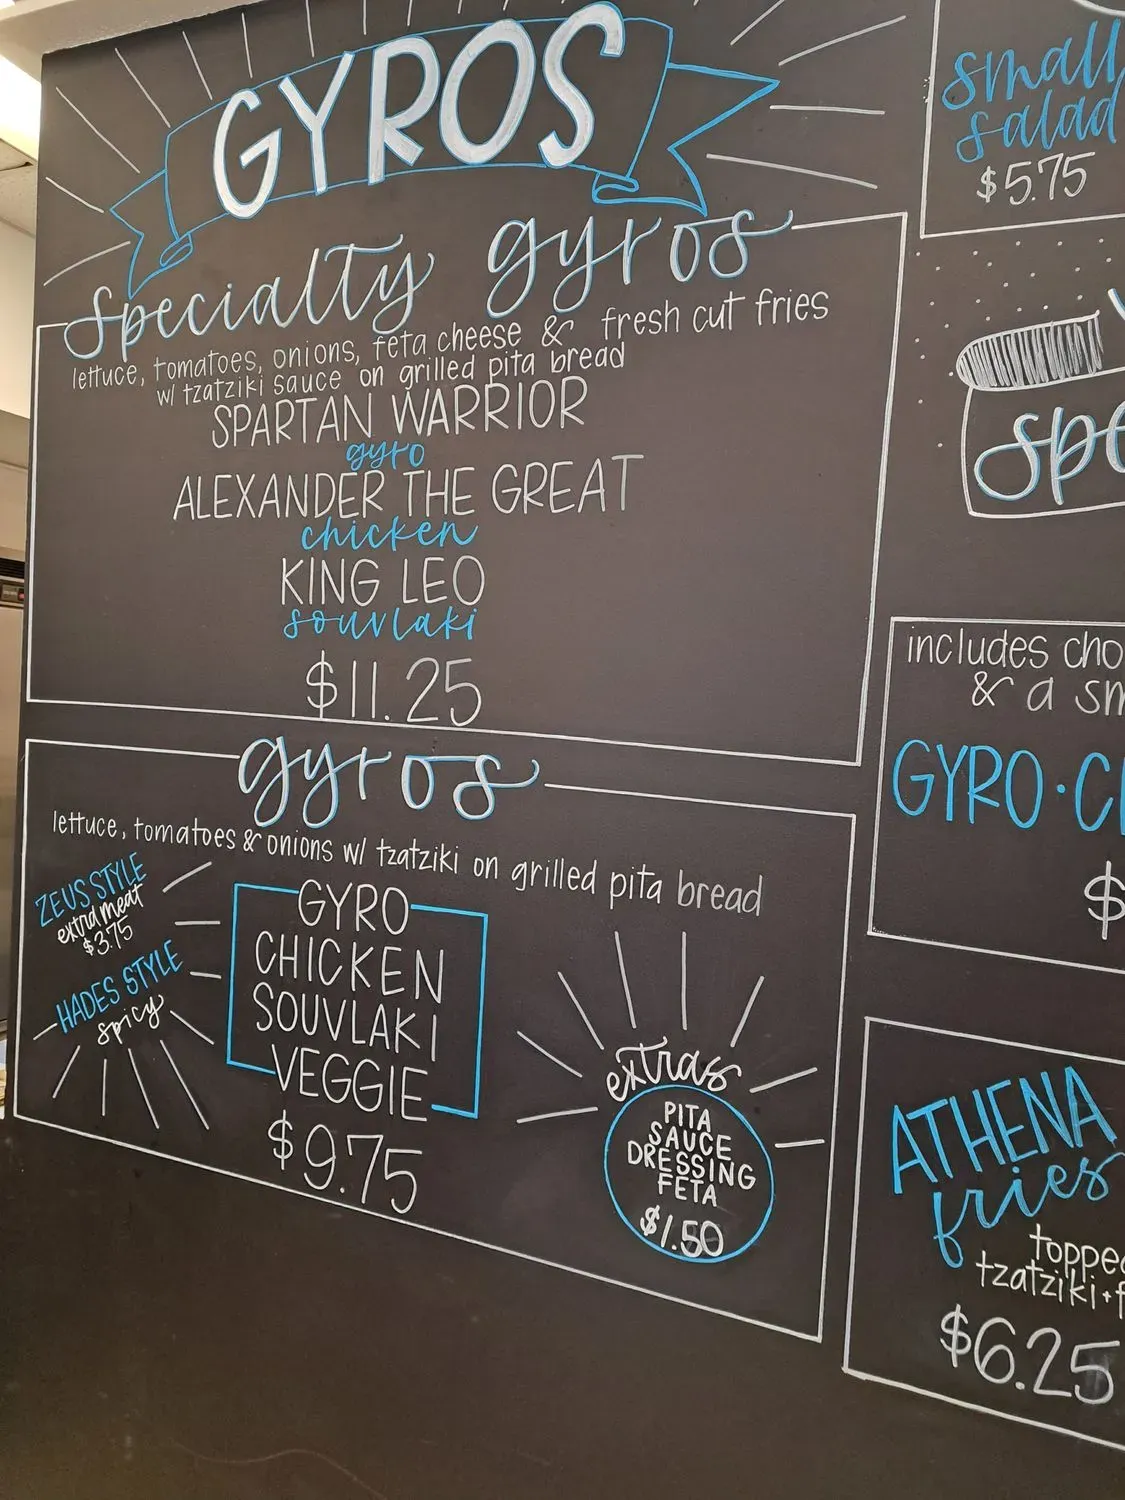 GYROS
specialty gyros
lettuce, tomatoes, onions, feta cheese & fresh cut fries
w/ tzatziki sauce on grilled pita bread
SPARTAN WARRIOR
gyro
ALEXANDER THE GREAT
chicken
KING LEO
souvlaki
$11.25
gyros
lettuce, tomatoes & onions w/ tzatziki on grilled pita bread
ZEUS STYLE
extra meat
$3.75
HADES STYLE
spicy
GYRO
CHICKEN
SOUVLAKI
VEGGIE
$9.75
extras
PITA
SAUCE
DRESSING
FETA
$1.50
small
salad
$5.75
spe
includes cho
& a sm
GYRO · C
$
ATHENA
fries
toppe
tzatziki + f
$6.25